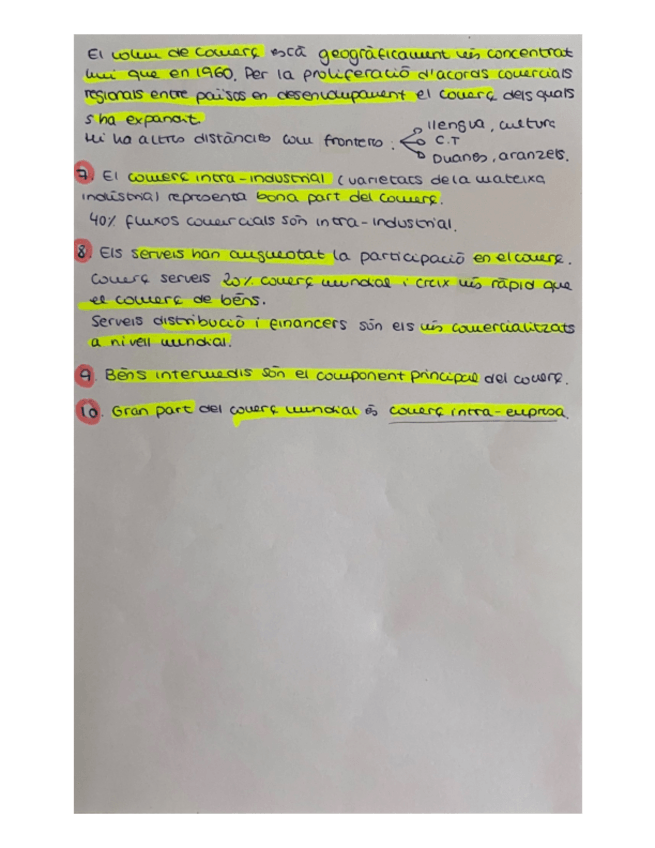 El volum de comerç està geogràficament més concentrat
hui que en 1960. Per la proliferació d'acords comercials
regionals entre països en desenvolupament el comerç dels quals
s'ha expandit.
Hi ha altres distàncies com fronteres:
llengua, cultura
C.T
Duanes, aranzels.
7. El comerç intra-industrial (varietats de la mateixa
indústria) representa bona part del comerç.
40% fluxos comercials són intra-industrial.
8. Els serveis han augmentat la participació en el comerç.
Comerç serveis 20% comerç mundial i creix més ràpid que
el comerç de béns.
Serveis distribució i financers són els més comercialitzats
a nivell mundial.
9. Béns intermedis són el component principal del comerç.
10. Gran part del comerç mundial és comerç intra-empresa.